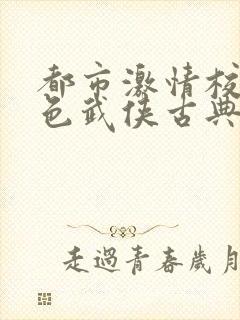 都市激情校
色武侠古典
走過青春歲月